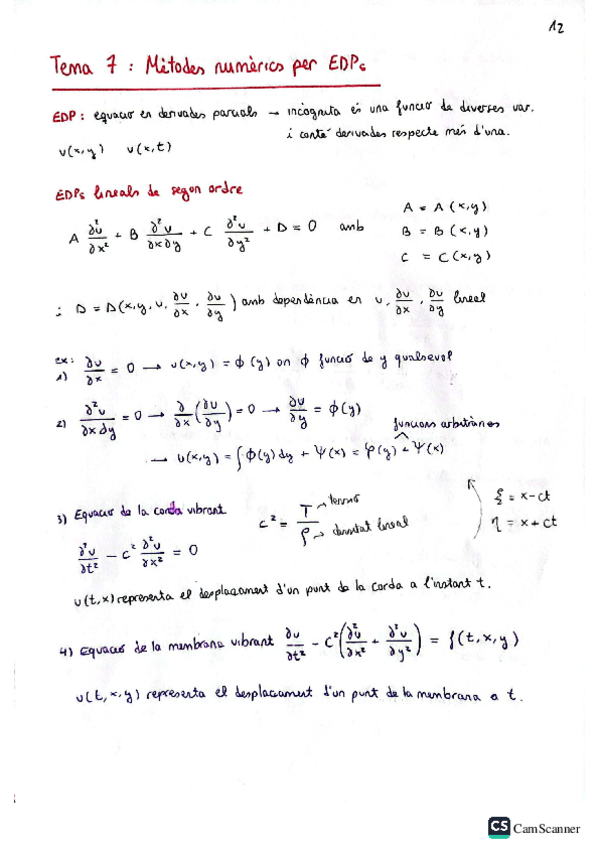 12
Tema 7 : Mètodes numèrics per EDPs
EDP : equació en derivades parcials → incògnita és una funció de diverses var.
i conté derivades respecte més d'una.
u(x,y)   u(x,t)
EDPs lineals de segon ordre
A ∂²u/∂x² + B ∂²u/∂x∂y + C ∂²u/∂y² + D = 0 amb
A = A(x,y)
B = B(x,y)
C = C(x,y)
i D = D(x,y,u, ∂u/∂x, ∂u/∂y) amb dependència en u, ∂u/∂x, ∂u/∂y lineal
ex:
1) ∂u/∂x = 0 → u(x,y) = ϕ(y) on ϕ funció de y qualsevol
2) ∂²u/∂x∂y = 0 → ∂/∂x (∂u/∂y) = 0 → ∂u/∂y = ϕ(y)
funcions arbitràries
→ u(x,y) = ∫ϕ(y)dy + Ψ(x) = φ(y) + Ψ(x)
3) Equació de la corda vibrant
c² = T/ρ
→ tensió
→ densitat lineal
ξ = x-ct
η = x+ct
∂²u/∂t² - c² ∂²u/∂x² = 0
u(t,x) representa el desplaçament d'un punt de la corda a l'instant t.
4) Equació de la membrana vibrant ∂u/∂t² - c²(∂²u/∂x² + ∂²u/∂y²) = f(t,x,y)
u(t,x,y) representa el desplaçament d'un punt de la membrana a t.
CS CamScanner